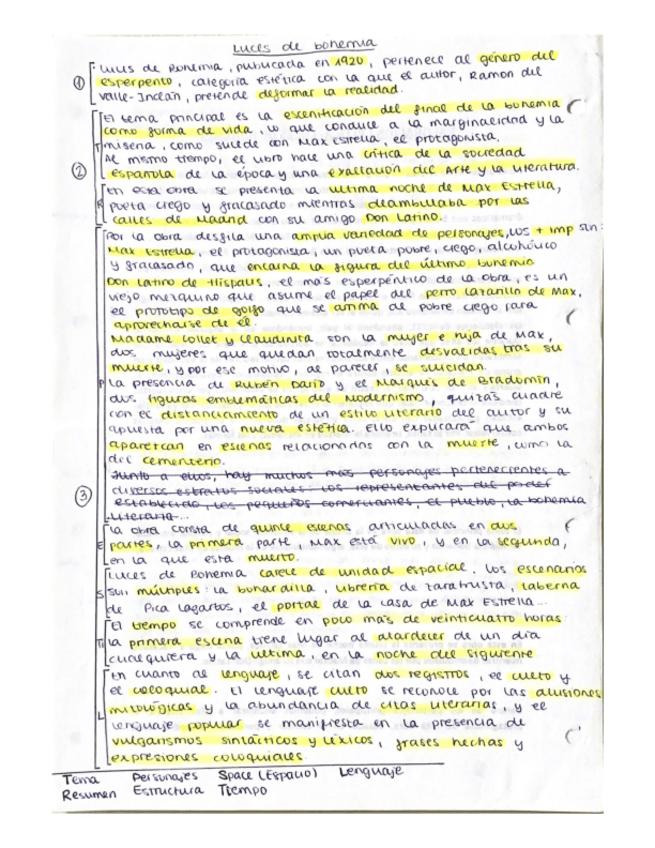 Luces de bohemia
① Luces de Bohemia, publicada en 1920, pertenece al género del
esperpento, categoría estética con la que el autor, Ramon del
Valle-Inclán, pretende deformar la realidad.
El tema principal es la escenificación del final de la bohemia
como forma de vida, lo que conduce a la marginalidad y la
T miseria, como sucede con Max Estrella, el protagonista.
Al mismo tiempo, el libro hace una crítica de la sociedad
② española de la época y una exaltación del Arte y la literatura.
En esta obra se presenta la ultima noche de Max Estrella,
R poeta ciego y fracasado mientras deambulaba por las
calles de Madrid con su amigo Don Latino.
Por la obra desfila una amplia variedad de personajes, los + imp son:
Max Estrella, el protagonista, un poeta pobre, ciego, alcohólico
y fracasado, que encarna la figura del último bohemio
Don Latino de Hispalis, el más esperpéntico de la obra, es un
viejo mezquino que asume el papel del perro lazarillo de Max,
el prototipo de golfo que se arrima al pobre ciego para
aprovecharse de él.
Madame Collet y Claudinita son la mujer e hija de Max,
dos mujeres que quedan totalmente desvalidas tras su
muerte, y por ese motivo, al parecer, se suicidan.
P La presencia de Rubén Darío y el Marqués de Bradomín,
dos figuras emblemáticas del Modernismo, quizás cuadre
con el distanciamiento de un estilo literario del autor y su
apuesta por una nueva estética. Ello explicará que ambos
aparezcan en escenas relacionadas con la muerte, como la
del cementerio.
Junto a ellos, hay muchos más personajes pertenecientes a
③ diversos estratos sociales: los representantes del poder
establecido, los pequeños comerciantes, el pueblo, la bohemia
literaria...
La obra consta de quince escenas articuladas en dos
E partes, la primera parte, Max está vivo, y en la segunda,
en la que está muerto.
Luces de Bohemia carece de unidad espacial. Los escenarios
S son múltiples: la bohardilla, librería de Zaratustra, taberna
de Pica Lagartos, el portal de la casa de Max Estrella...
El tiempo se comprende en poco más de veinticuatro horas:
Ti la primera escena tiene lugar al atardecer de un día
cualquiera y la ultima, en la noche del siguiente
En cuanto al lenguaje, se citan dos registros, el culto y
el coloquial. El lenguaje culto se reconoce por las alusiones
mitológicas y la abundancia de citas literarias, y el
L lenguaje popular se manifiesta en la presencia de
vulgarismos sintácticos y léxicos, frases hechas y
expresiones coloquiales
Tema Personajes Space (Espacio) Lenguaje
Resumen Estructura Tiempo